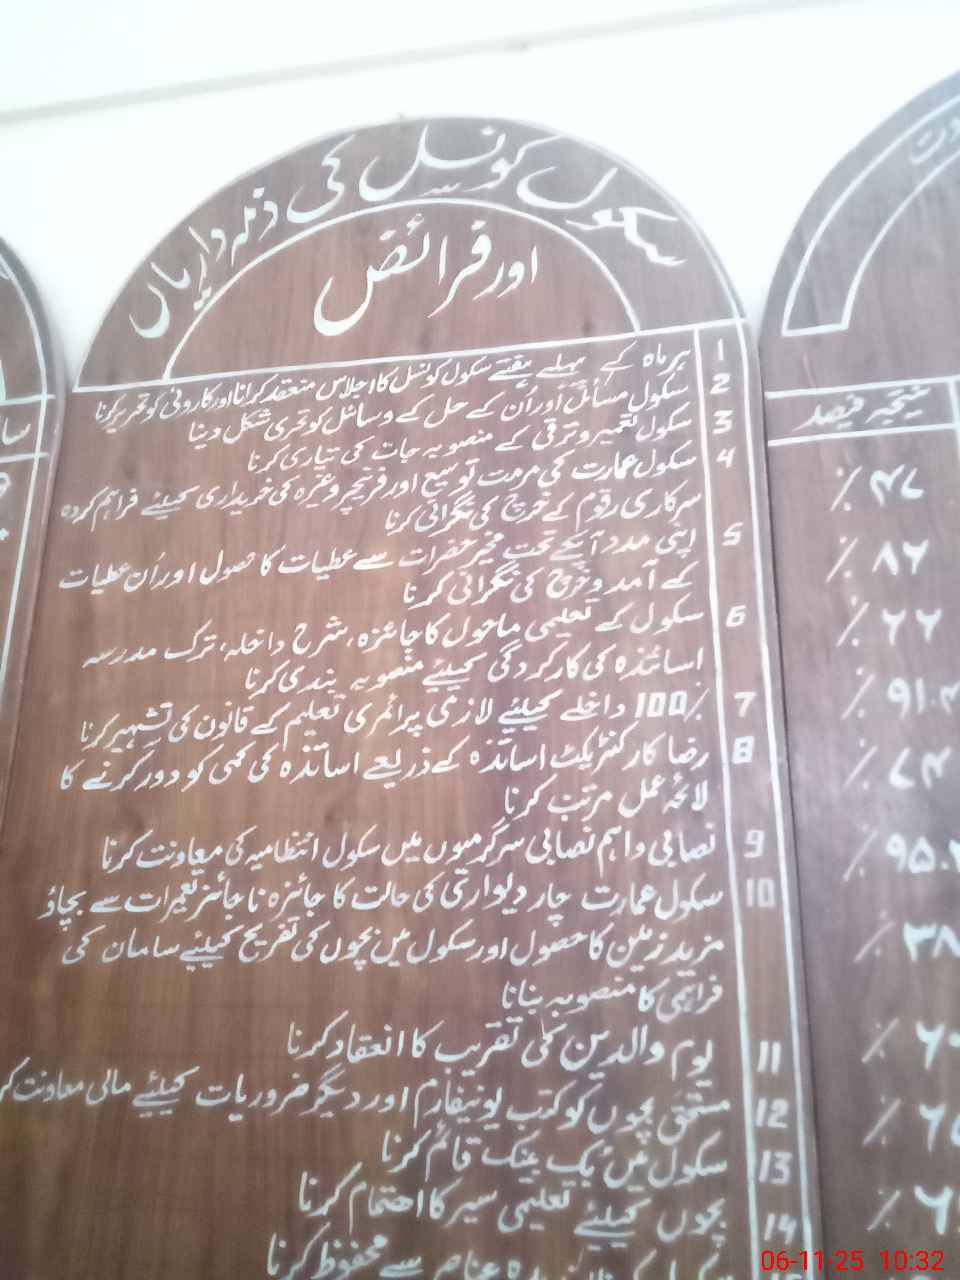 سکول کونسل کی ذمہ داریاں
اور فرائض
1 ہر ماہ کے پہلے ہفتے سکول کونسل کا اجلاس منعقد کرانا اور کاروائی کو تحریر کرنا
2 سکول مسائل اور اُن کے حل کے وسائل کو تحری شکل دینا
3 سکول تعمیر و ترقی کے منصوبہ جات کی تیاری کرنا
4 سکول عمارت کی مرمت توسیع اور فرنیچر وغیرہ کی خریداری کیلئے فراہم کردہ
سرکاری رقوم کے خرچ کی نگرانی کرنا
5 اپنی مدد آپکے تحت مخیر حضرات سے عطیات کا حصول اور اُن عطیات
کے آمد و خرچ کی نگرانی کرنا
6 سکول کے تعلیمی ماحول کا جائزہ، شرح داخلہ، ترک مدرسہ
اساتذہ کی کارکردگی کیلئے منصوبہ بندی کرنا
7 100% داخلے کیلئے لازمی پرائمری تعلیم کے قانون کی تشہیر کرنا
8 رضا کار کنٹریکٹ اساتذہ کے ذریعے اساتذہ کی کمی کو دور کرنے کا
لائحہ عمل مرتب کرنا
9 نصابی و اہم نصابی سرگرمیوں میں سکول انتظامیہ کی معاونت کرنا
10 سکول عمارت چار دیواری کی حالت کا جائزہ نا جائز تعمیرات سے بچاؤ
مزید زمین کا حصول اور سکول میں بچوں کی تفریح کیلئے سامان کی
فراہمی کا منصوبہ بنانا
11 یوم والدین کی تقریب کا انعقاد کرنا
12 مستحق بچوں کو کتب یونیفارم اور دیگر ضروریات کیلئے مالی معاونت
13 سکول میں بک بینک قائم کرنا
14 بچوں کیلئے تعلیمی سیر کا احتمام کرنا
عناصر سے محفوظ کرنا
نتیجہ فیصد
۴۷ ٪
۸۲ ٪
۲۲ ٪
۹۱.۰ ٪
۷۴ ٪
۹۵. ٪
۳۸ ٪
06-11-25 10:32